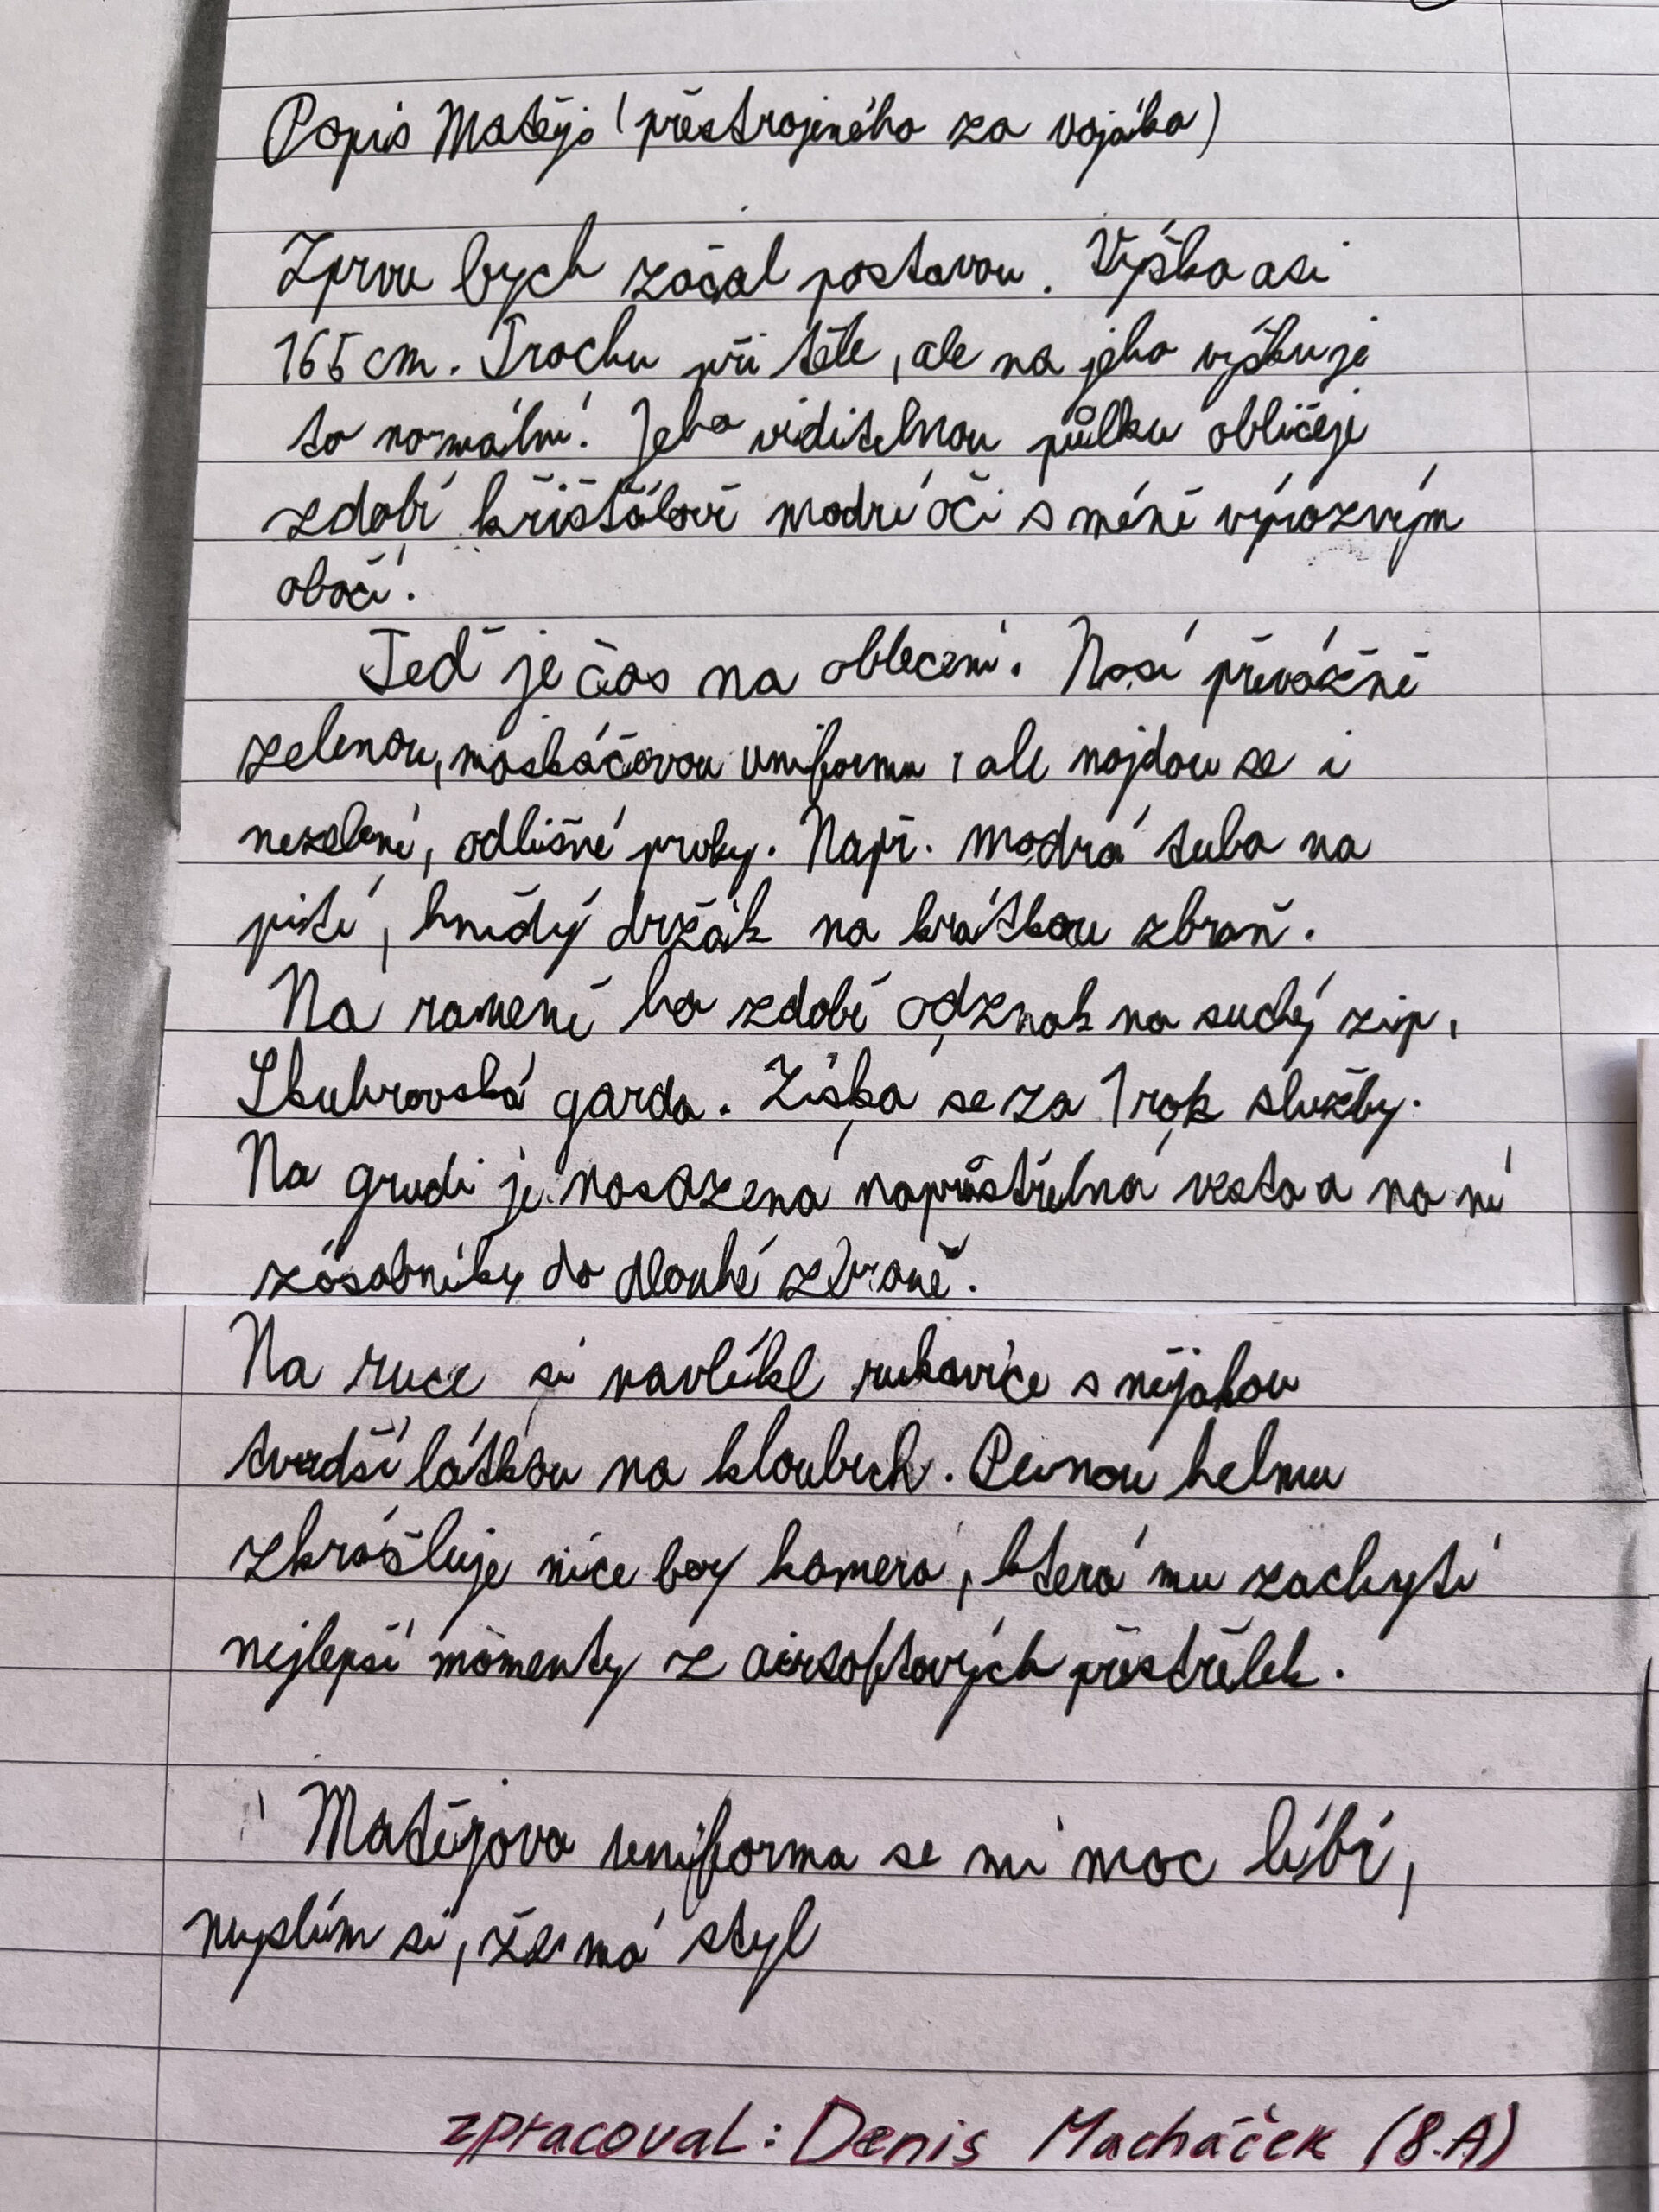 Popis Matěje (přestrojeného za vojáka)
Zprvu bych začal postavou. Výška asi
165 cm. Trochu při těle, ale na jeho výšku je
to normální. Jeho viditelnou půlku obličeje
zdobí křišťálově modré oči s méně výrazným
obočí.
Teď je čas na oblečení. Nosí převážně
zelenou, maskáčovou uniformu, ale najdou se i
nezelené, odlišné prvky. Např. modrá tuba na
pití, hnědý držák na krátkou zbraň.
Na rameni ho zdobí odznak na suchý zip,
Skuhrovská garda. Získá se za 1 rok služby.
Na hrudi je nasazena neprůstřelná vesta a na ní
zásobníky do dlouhé zbraně.
Na ruce si navlékl rukavice s nějakou
tvrdší látkou na kloubech. Pevnou helmu
zkrášluje nice boy kamera, která mu zachytí
nejlepší momenty z airsoftových přestřelek.
Matějova uniforma se mi moc líbí,
myslím si, že má styl
zpracoval: Denis Macháček (8.A)